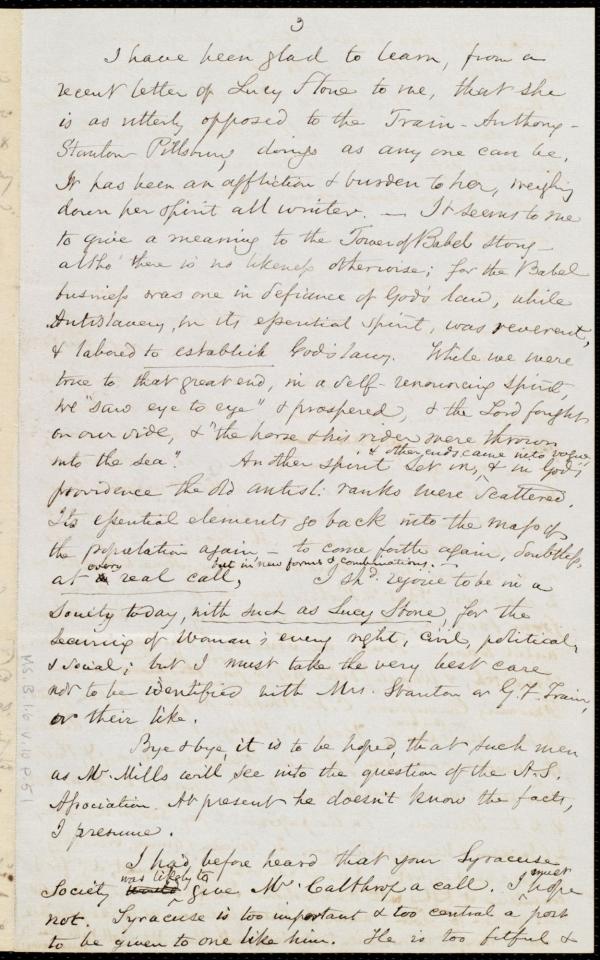 3
I have been glad to learn, from a
recent letter of Lucy Stone to me, that she
is as utterly opposed to the Train-Anthony-
Stanton Pillsbury doings as any one can be.
It has been an affliction & burden to her, weighing
down her spirit all winter. — It seems to me
to give a meaning to the Tower of Babel story —
altho' there is no likeness otherwise; for the Babel
business was one in defiance of God's law, while
Antislavery, in its essential spirit, was reverent,
& labored to establish God's laws. While we were
true to that great end, in a self-renouncing spirit,
we "saw eye to eye" & prospered, & the Lord fought
on our side, & "the horse & his rider were thrown
into the sea". Another spirit set in, & other ends came into vogue & in God's
providence the old antisl: ranks were scattered.
Its essential elements go back into the mass of
the population again — to come forth again, doubtless,
at every real call, but in new forms & combinations. — I shd. rejoice to be in a
Society today, with such as Lucy Stone, for the
securing of Woman's every right, civil, political,
& social; but I must take the very best care
not to be identified with Mrs. Stanton or G. F. Train,
or their like.
Bye & bye, it is to be hoped, that such men
as Mr Mills will see into the question of the A.S.
Association. At present he doesn't know the facts,
I presume.
I had before heard that your Syracuse
Society was likely to give Mr Calthrop a call. I must hope
not. Syracuse is too important & too central a post
to be given to one like him. He is too fitful &
MS B.1.6 v.10 p.51